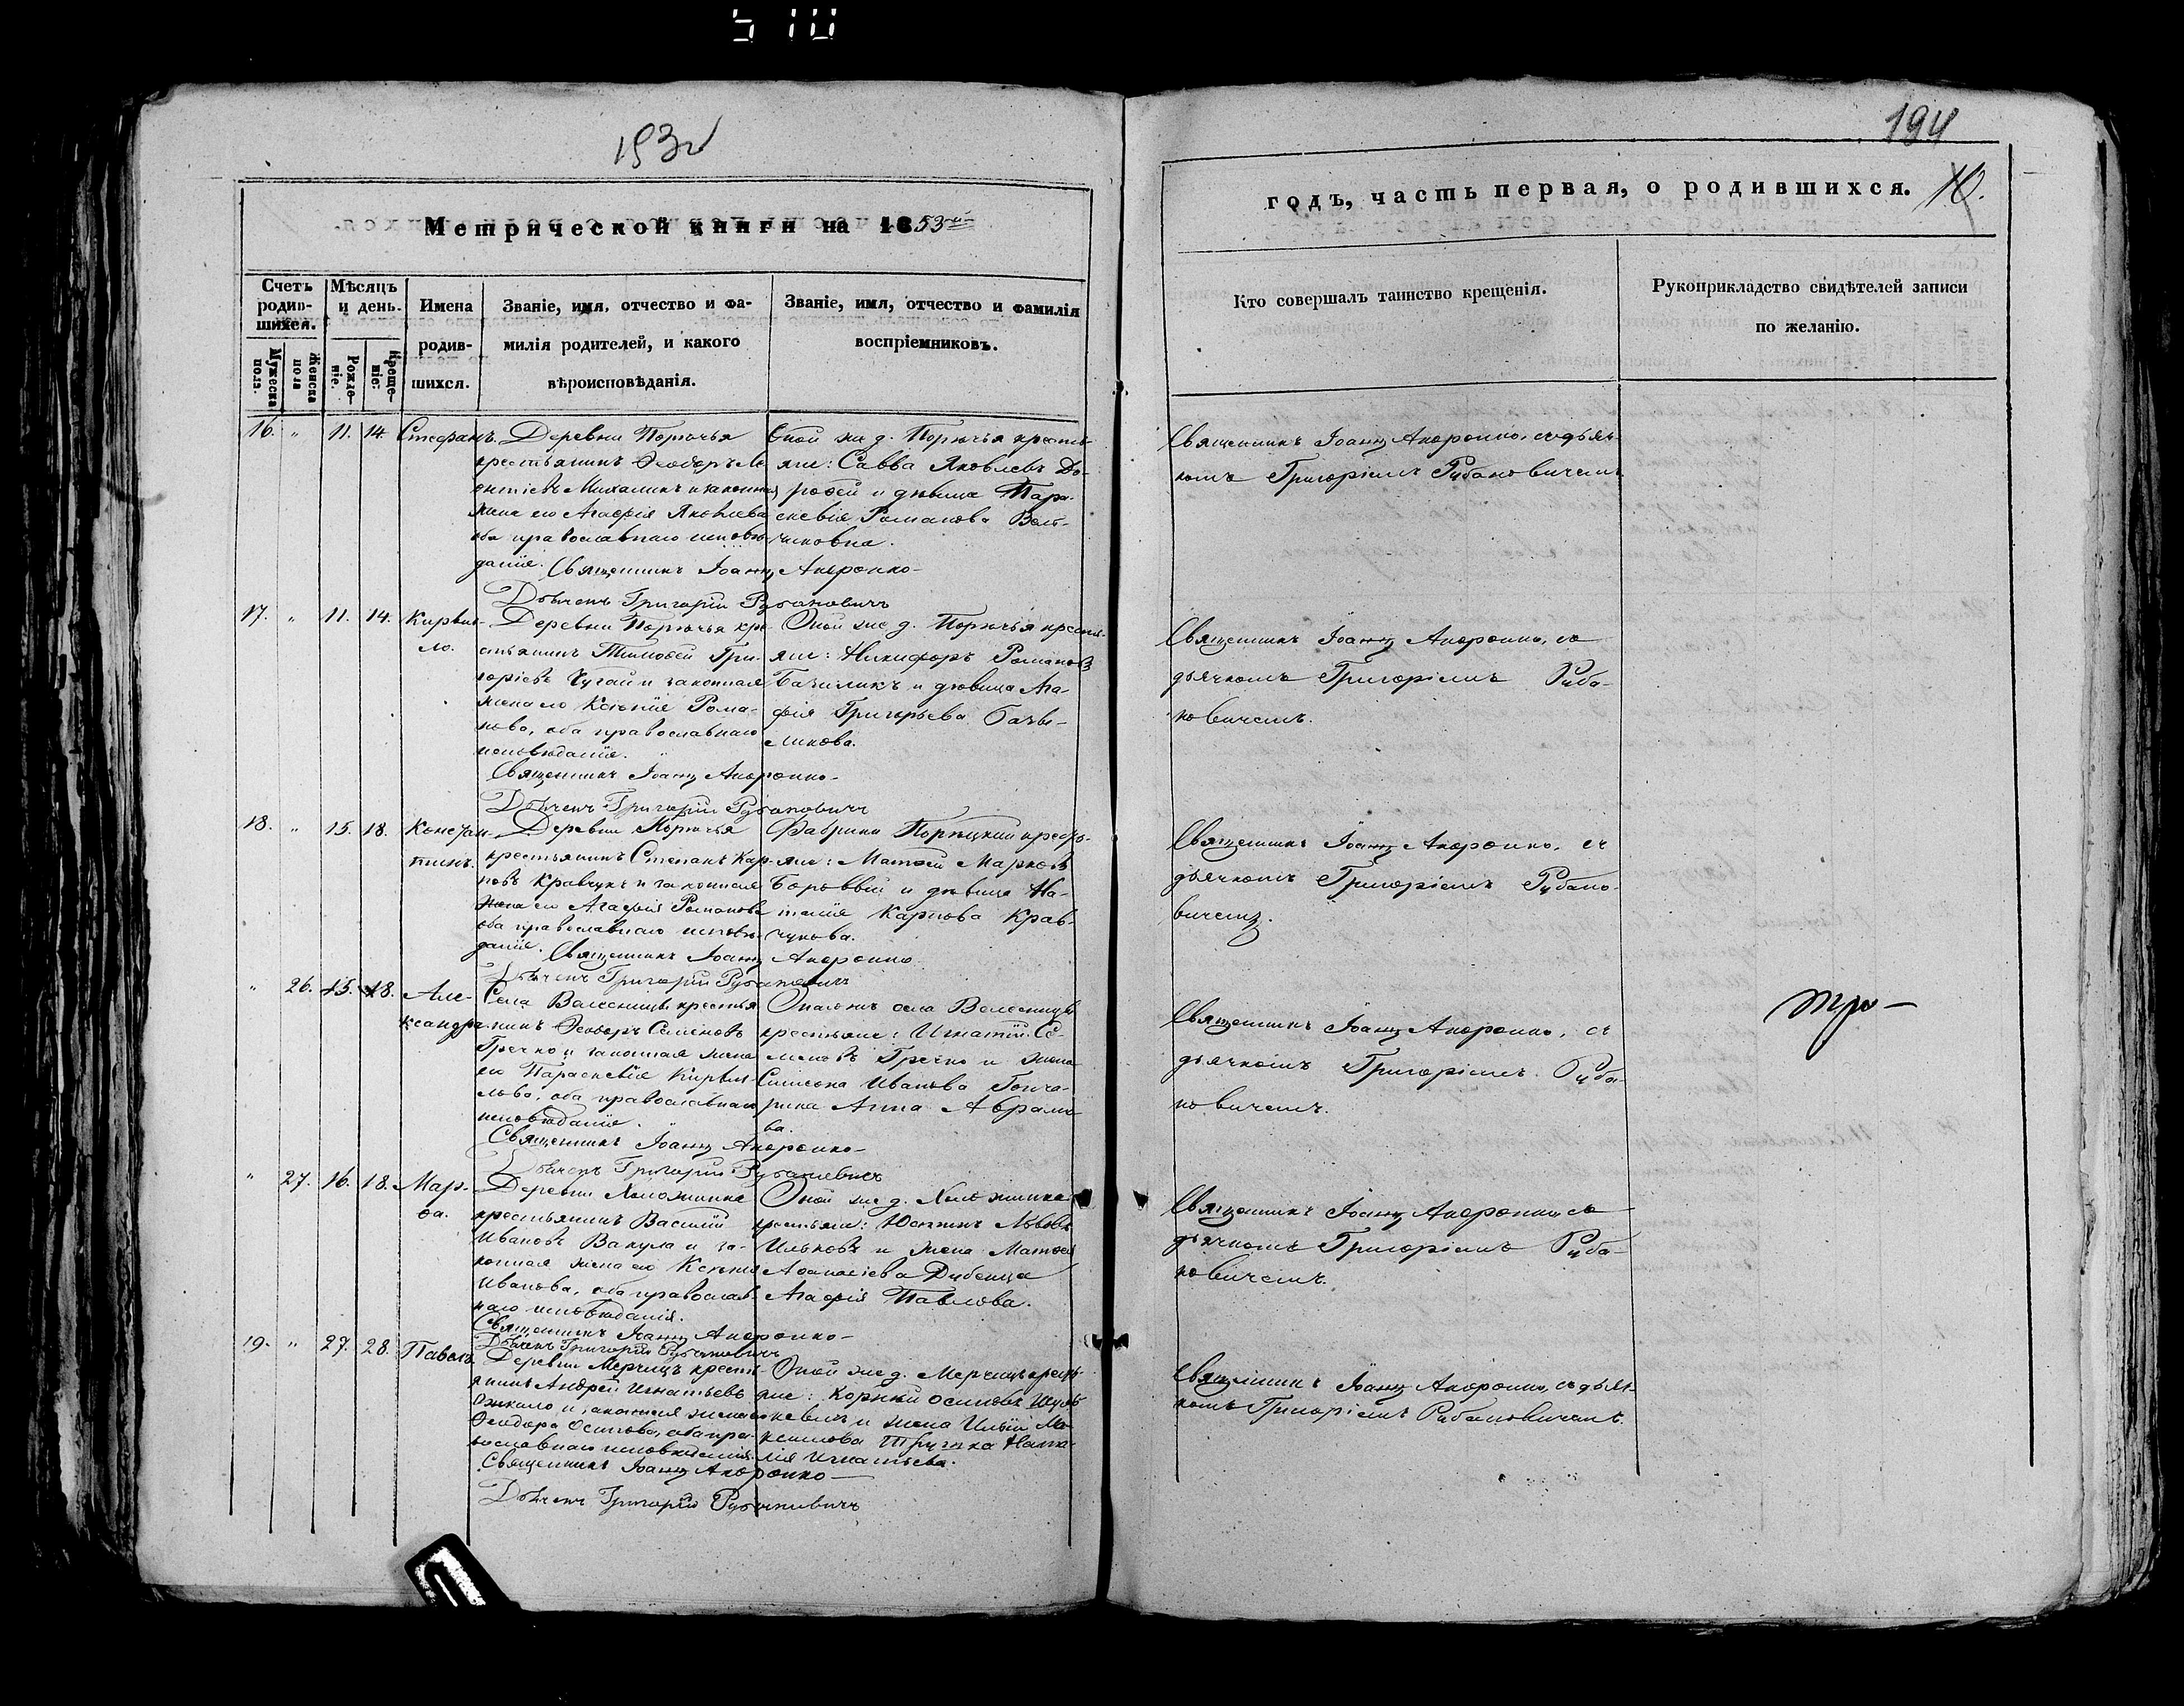 510
193 об
194
10.
Метрической книги на 1853й
годъ, часть первая, о родившихся.
Счетъ родив-шихся.
Мѣсяцъ и день.
Имена родив-шихся.
Званіе, имя, отчество и фа-
милія родителей, и какого
вѣроисповѣданія.
Званіе, имя, отчество и фамилія
воспріемниковъ.
Кто совершалъ таинство крещенія.
Рукоприкладство свидѣтелей записи
по желанію.
Мужеска пола.
Женска пола
Рожде-ніе.
Креще-ніе.
16. " 11. 14. Стефанъ.
Деревни Порѣчья
крестьянинъ Ѳеодоръ Ле
онтіевъ Михаликъ и законная
жена его Агафія Яковлева
оба православнаго исповѣ-
данія. Священникъ Іоаннъ
Дьячекъ Григорій Рубановичъ
Оной же д. Порѣчья кресть-
яне: Савва Яковлевъ До-
рофей и дѣвица Пара-
скевія Романова
Священникъ Іоаннъ съ дьяч-
комъ Григоріемъ Рубановичемъ
17. " 11. 14. Кирил-
ло.
Деревни Порѣчья кре-
стьянинъ Тимоѳей Гри-
горіевъ Чугай и законная
жена его Ксенія Рома-
нова, оба православнаго
исповѣданія.
Священникъ Іоаннъ
Дьячекъ Григорій Рубановичъ
Оной же д. Порѣчья кресть-
яне: Никифоръ Романовъ
Бачиликъ и дѣвица Ага-
фія Григорьева Бачи-
ликова.
Священникъ Іоаннъ съ
дьячкомъ Григоріемъ Руба-
новичемъ.
18. " 15. 18. Констан-
тинъ.
Деревни Порѣчья
крестьянинъ Степанъ Кар-
повъ Кравчукъ и законная
жена его Агафія Романова
оба православнаго исповѣ-
данія. Священникъ Іоаннъ
Дьячекъ Григорій Рубановичъ
Фабрики Порѣцкой кресть-
яне: Матѳей Марковъ
Боровый и дѣвица На-
талія Карпова Крав-
чукова.
Священникъ Іоаннъ съ
дьячкомъ Григоріемъ Рубано-
вичемъ.
" 26. 15. 18. Але-
ксандра.
Села Валесницы крестья
нинъ Ѳеодоръ Семеновъ
Гречко и законная жена
его Параскевія Кирил-
лова, оба православнаго
исповѣданія.
Священникъ Іоаннъ
Дьячекъ Григорій Рубановичъ
села Валесницы
крестьяне: Игнатій Се-
меновъ Гречко и жена
Симеона Иванова Гонча-
рика Анна Абрамо
ва.
Священникъ Іоаннъ съ
дьячкомъ Григоріемъ Руба-
новичемъ.
" 27. 16. 18. Мар-
ѳа.
Деревни Холожинка
крестьянинъ Василій
Ивановъ Вакула и за-
конная жена его Ксенія
Иванова, оба православ-
наго исповѣданія.
Священникъ Іоаннъ
Дьячекъ Григорій Рубановичъ
Оной же д. Холожинка
крестьяне: Юстинъ Львовъ
Ильковъ и жена Матѳея
Аѳанасіева Дубенца
Агафія Павлова.
Священникъ Іоаннъ съ
дьячкомъ Григоріемъ Руба-
новичемъ.
19. " 27. 28. Павелъ.
Деревни Мерчицъ кресть
янинъ Андрей Игнатьевъ
и законная жена его
Ѳеодора Осипова, оба пра-
вославнаго исповѣданія.
Священникъ Іоаннъ
Дьячекъ Григорій Рубановичъ
Оной же д. Мерчицъ кресть
яне: Корней Осиповъ Шуль
кевичъ и жена Иліи Ма
ксимова Ната-
лія Игнатьева.
Священникъ Іоаннъ съ дьяч-
комъ Григоріемъ Рубановичемъ.